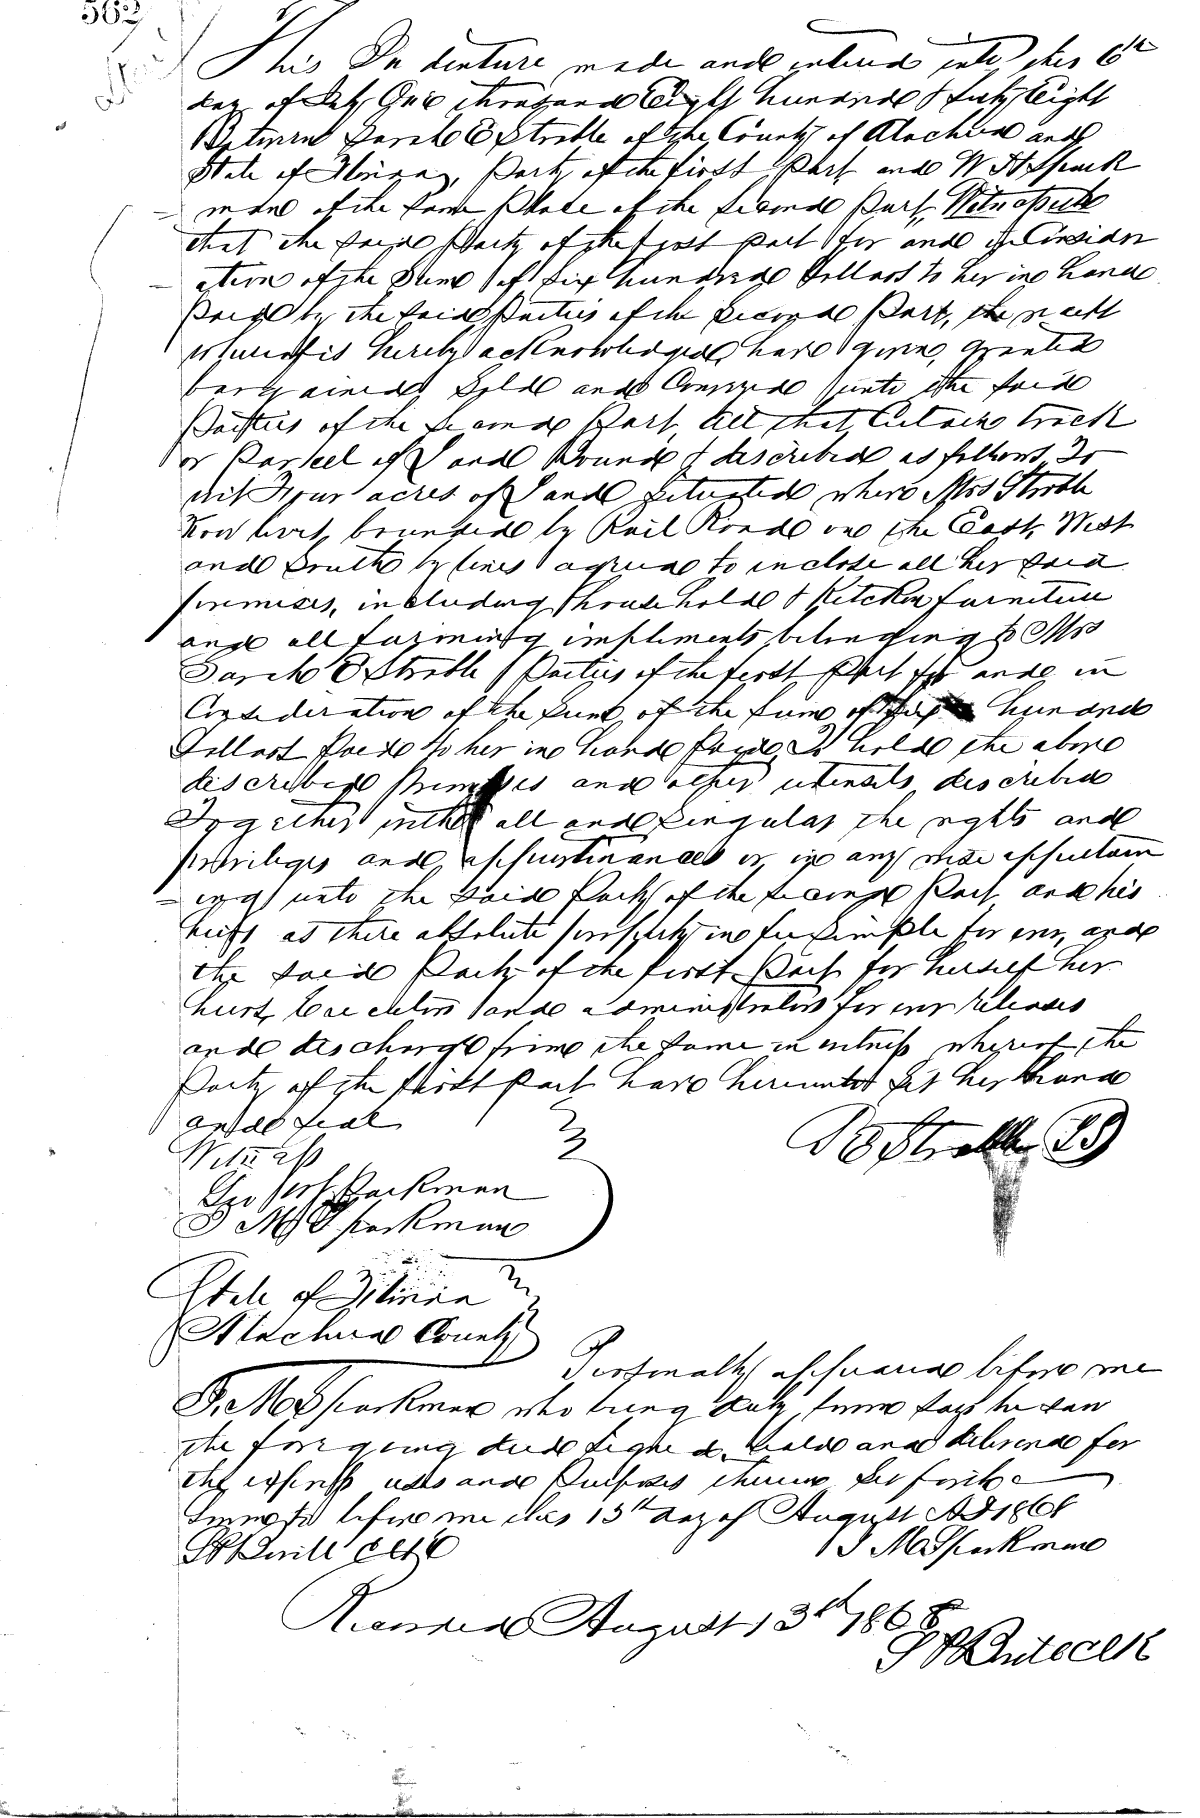 562
This In denture made and entered into this 6th
day of July One thousand Eight hundred & Sixty Eight
Between Sarah E Stroble of the County of Alachua and
State of Florida, Party of the first Part and W H Spark
= man of the Same Place of the Second Part, Witnesseth
that the Said Party of the first part for and in Consider
= ation of the Sum of Six hundred dollars to her in hand
Paid by the Said Parties of the Second Part, the receit
whereof is hereby acknowledged, have given, granted
bargained Sold and Conveyed unto the Said
Parties of the Second Part, All that Certain track
or Parsel of Land Bound & described as follows, To
wit Four acres of Land Situated where Mrs Stroble
Now lives, bounded by Rail Road on the East, West
and South by lines agreed to inclose all her Said
premises, including household & Kitchen furniture
and all farming impliments belonging to Mrs
Sarah E Stroble Parties of the first Part for and in
Consideration of the Sum of the Sum of Six hundred
Dollars Paid to her in hand Paid To hold the above
described Premises and other utensils described
Together with all and Singular the rights and
privileges and appurtinances or in any wise appertain
= ing unto the Said Party of the Second Part, and his
heirs as there absolute property in fee Simple for ever, and
the Said Party of the first Part for herself her
heirs, Executors and administrators for ever releases
and discharge from the Same in witness whereof the
Party of the first Part have hereunto Set her hand
and Seal
S E Stroble
Witness
Sparkman
J M Sparkman
State of Florida
Alachua County
Personally appeared before me
J. M Sparkman who being duly Sworn Says he Saw
the foregoing deed Signed, Seald and delivered for
the express uses and Purposes therein Set forth
Sworn to before me this 13th day of August AD 1868
J M Sparkman
Recorded August 13th 1868